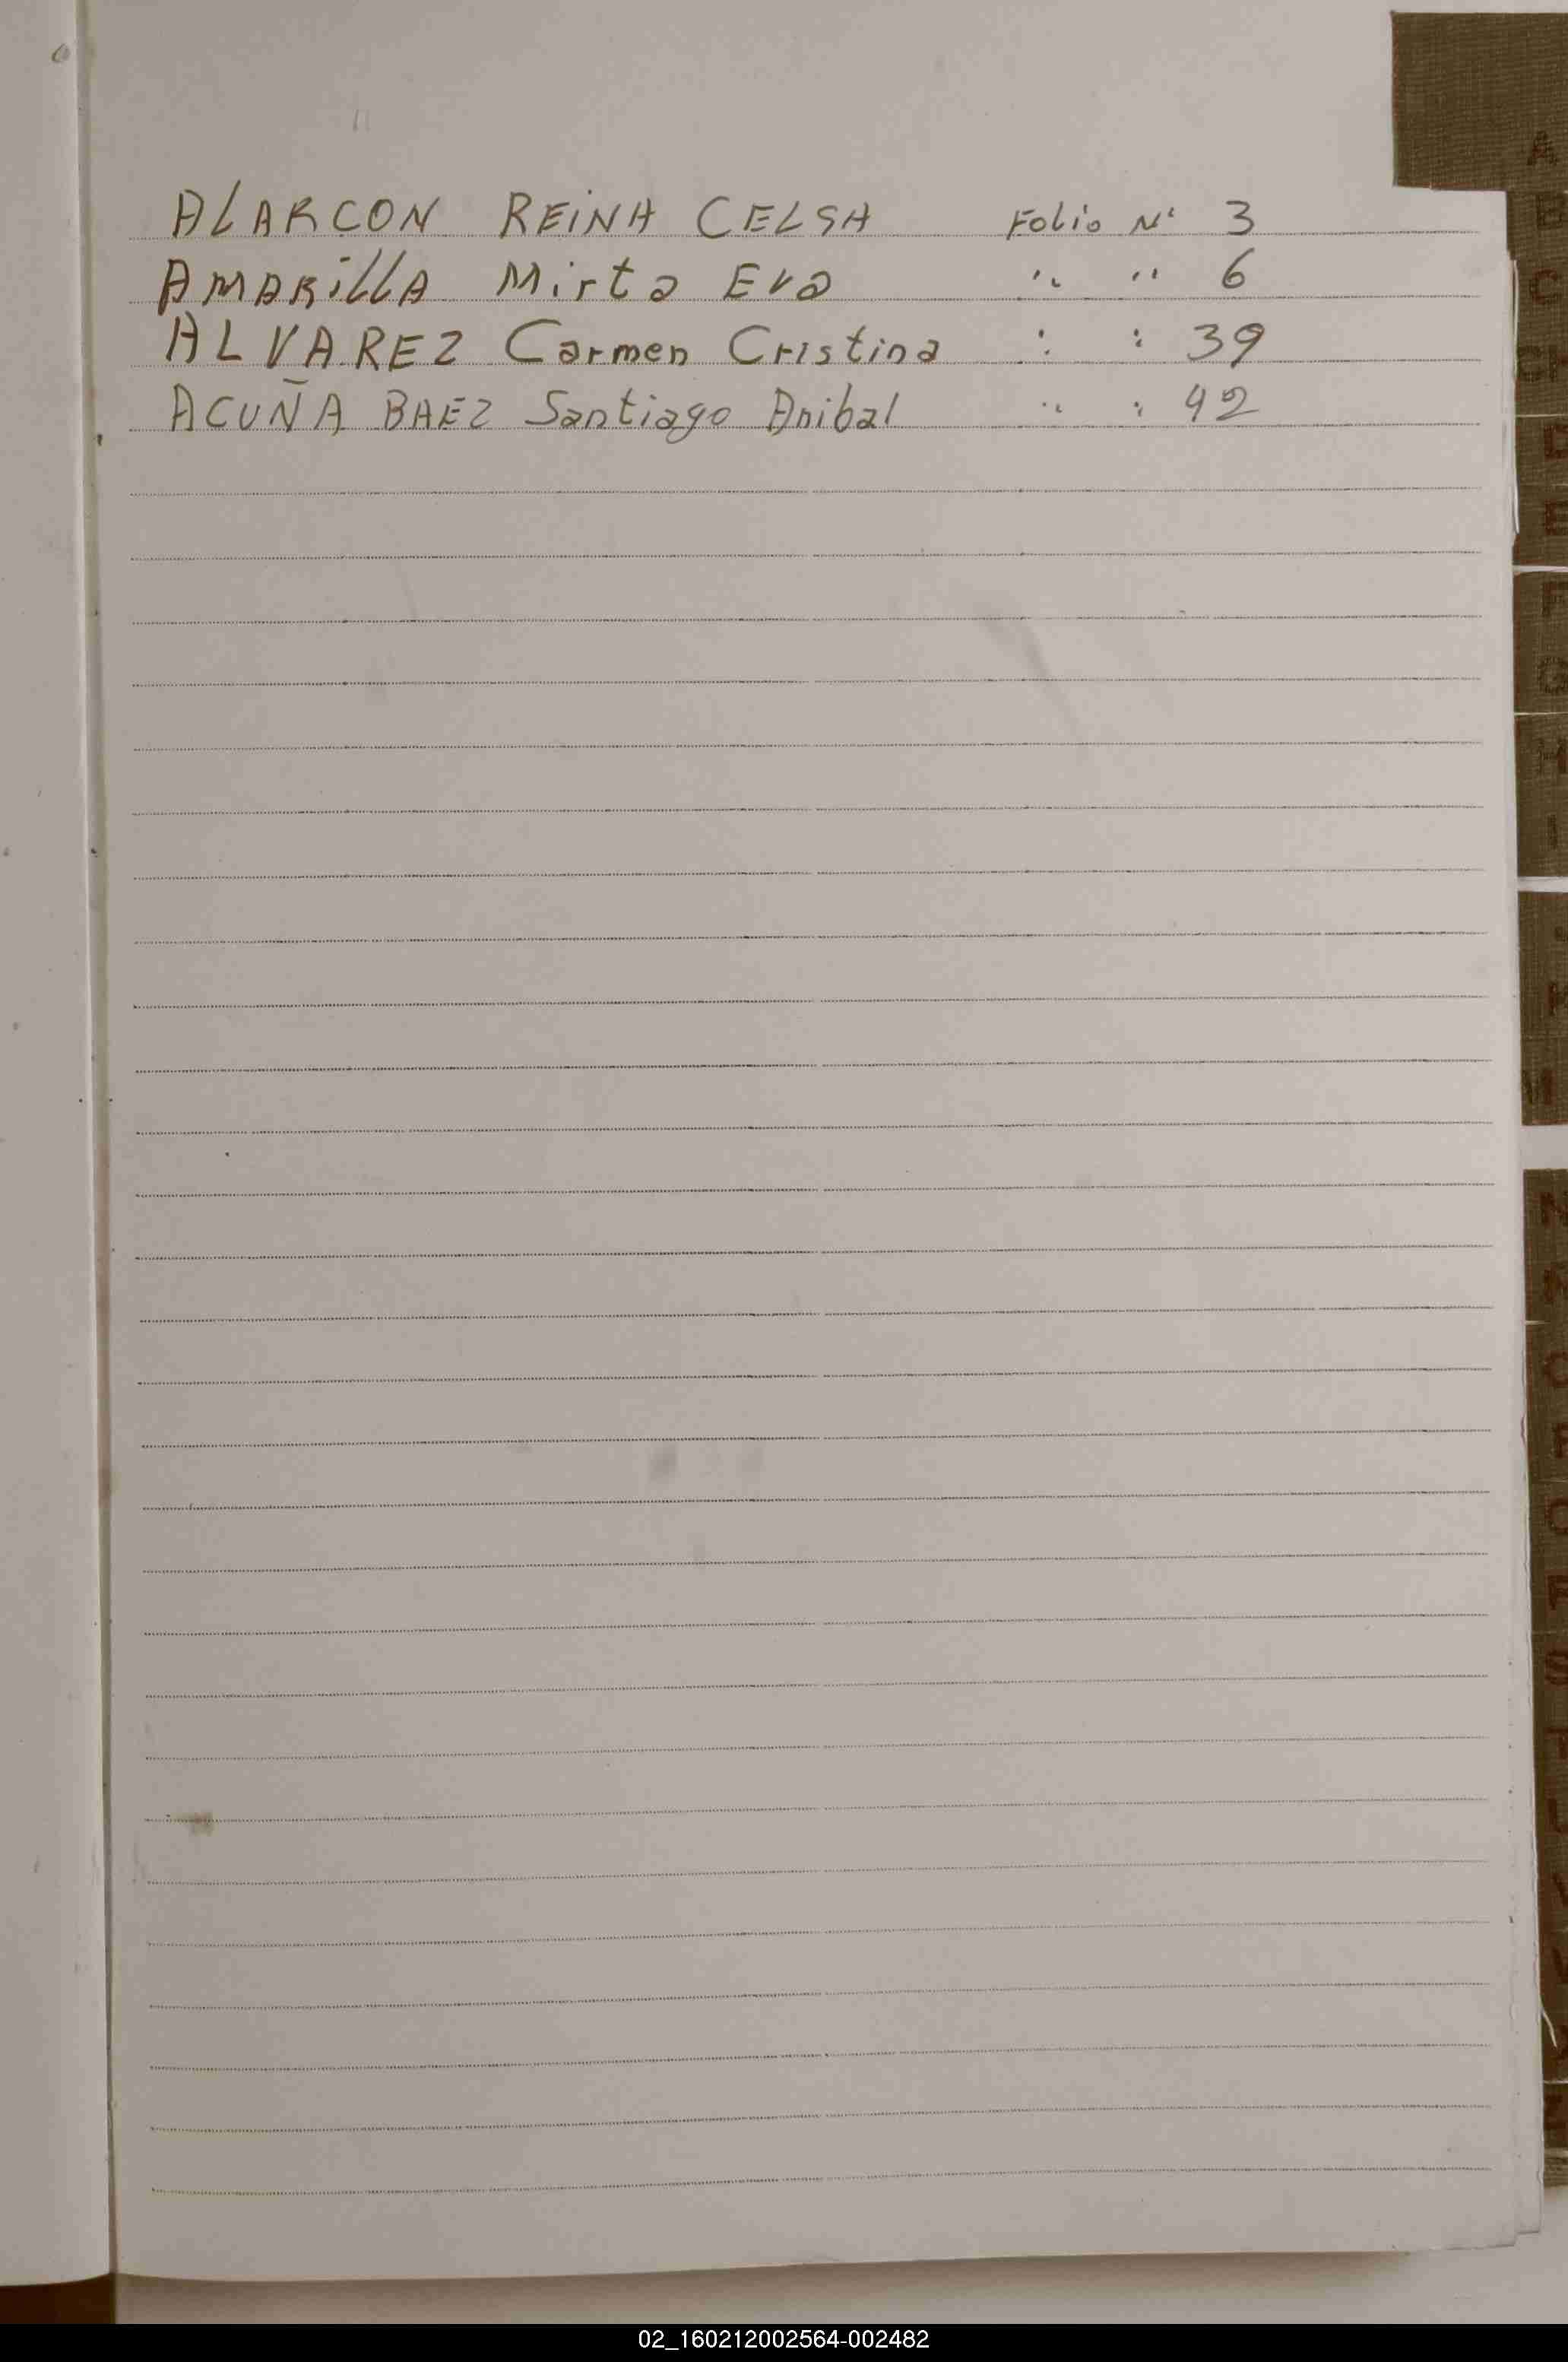 ALARCON REINA CELSA Folio Nº 3
AMARillA Mirta Eva " " 6
ALVAREZ Carmen Cristina : : 39
ACUÑA BAEZ Santiago Anibal " : 42
A
B
C
CH
D
E
F
G
H
I
M
N
Ñ
O
P
Q
R
S
T
U
V
02_160212002564-002482